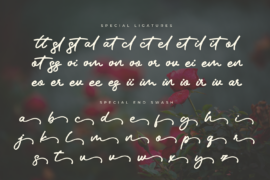 SPECIAL LIGATURES
tt sl st al at cl ct el et il it ol
ot ss oi om on oo or ou ei em en
eo er eu ee ii im in io ir iu ar
SPECIAL END SWASH
a b c d e f g h i
j k l m n o p q r
s t u v w x y z